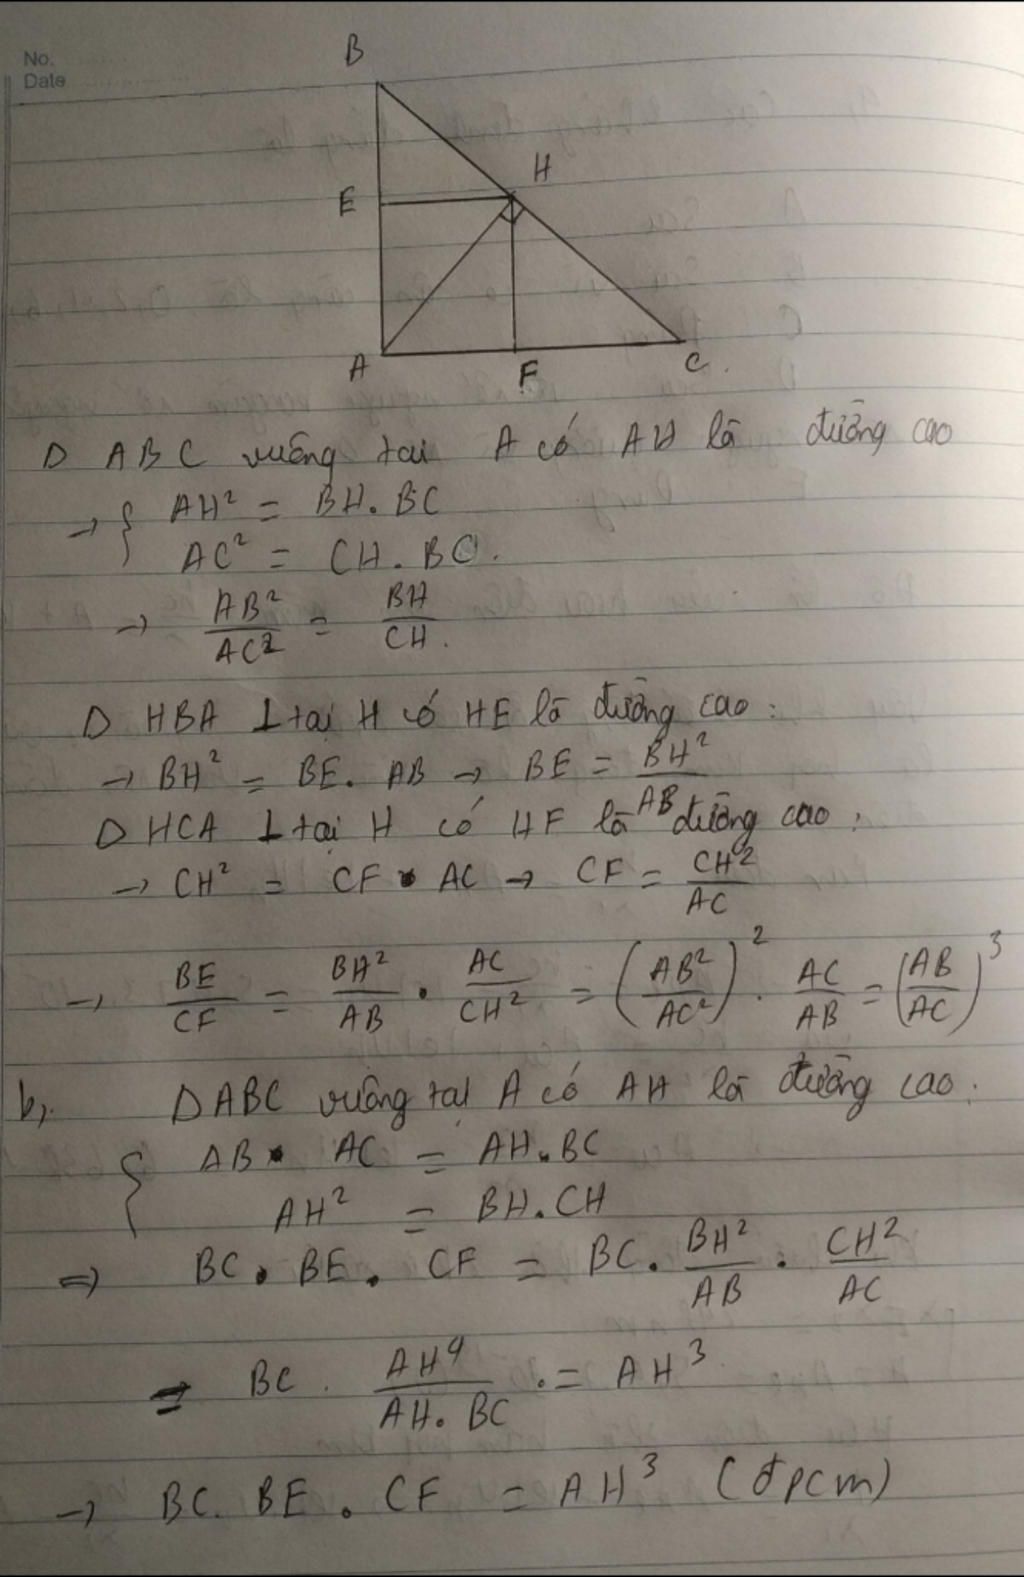 No.
Date
B
H
E
A
F
C
Δ ABC vuông tại A có AH là đường cao
→ { AH² = BH. BC
AC² = CH. BC.
→ AB²/AC² = BH/CH.
Δ HBA ⊥ tại H có HE là đường cao :
→ BH² = BE. AB → BE = BH²/AB
Δ HCA ⊥ tại H có HF là đường cao :
→ CH² = CF . AC → CF = CH²/AC
→ BE/CF = BH²/AB . AC/CH² = (AB²/AC²)² . AC/AB = (AB/AC)³
b, Δ ABC vuông tại A có AH là đường cao :
{ AB . AC = AH. BC
AH² = BH. CH
⇒ BC . BE . CF = BC . BH²/AB . CH²/AC
= BC . AH⁴/AH. BC . = AH³
→ BC. BE . CF = AH³ (đpcm)